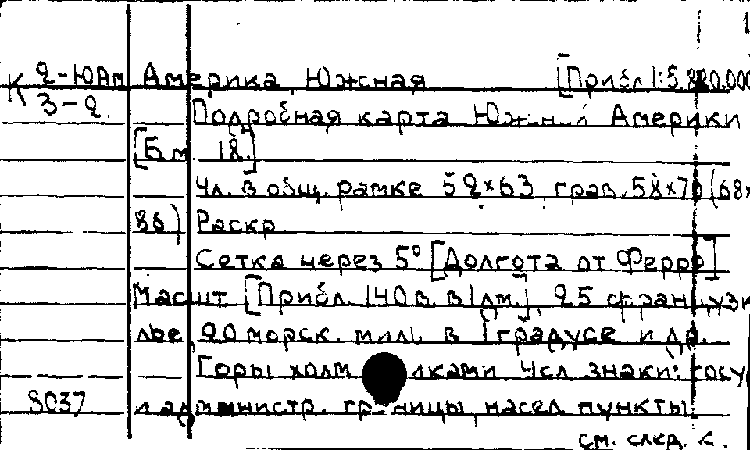 1
К 2-ЮАм Америка Южная [Прибл 1:5.820.000
3-2 Подробная карта Южной Америки
[Б м 18.]
4л. в общ. рамке 52×63, грав. 58×70 (68×
86) Раскр.
Сетка через 5° [Долгота от Ферро]
Масшт [Прибл. 140 в. в 1 дм.], 25 француз
лье, 20 морск. миль в 1 градусе и др.
Горы холмиками. Усл. знаки: госу
8037 и администр. границы, насел. пункты.
см. след. к.